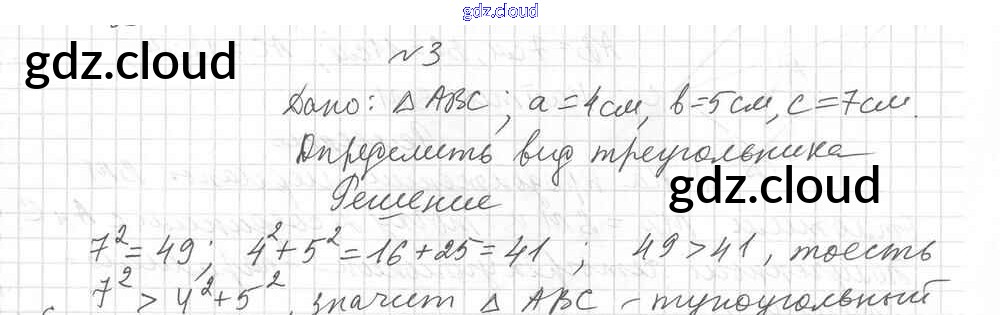 gdz.cloud
gdz.cloud
№3
Дано: △ABC; a=4см, b=5см, c=7см.
Определить вид треугольника
gdz.cloud
Решение
7²=49; 4²+5²=16+25=41; 49>41, тоесть
7²>4²+5², значит △ ABC - тупоугольный